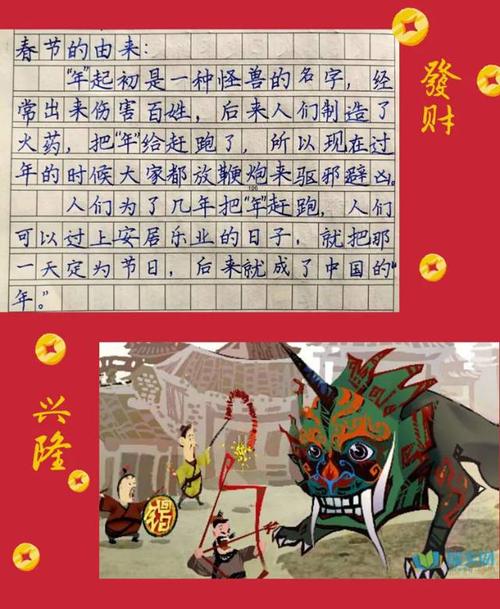 春节的由来:
"年"起初是一种怪兽的名字,经
常出来伤害百姓,后来人们制造了
火药,把"年"给赶跑了,所以现在过
年的时候大家都放鞭炮来驱邪避凶。
人们为了几年把"年"赶跑,人们
可以过上安居乐业的日子,就把那
一天定为节日,后来就成了中国的"
年。"
發财
兴隆
福